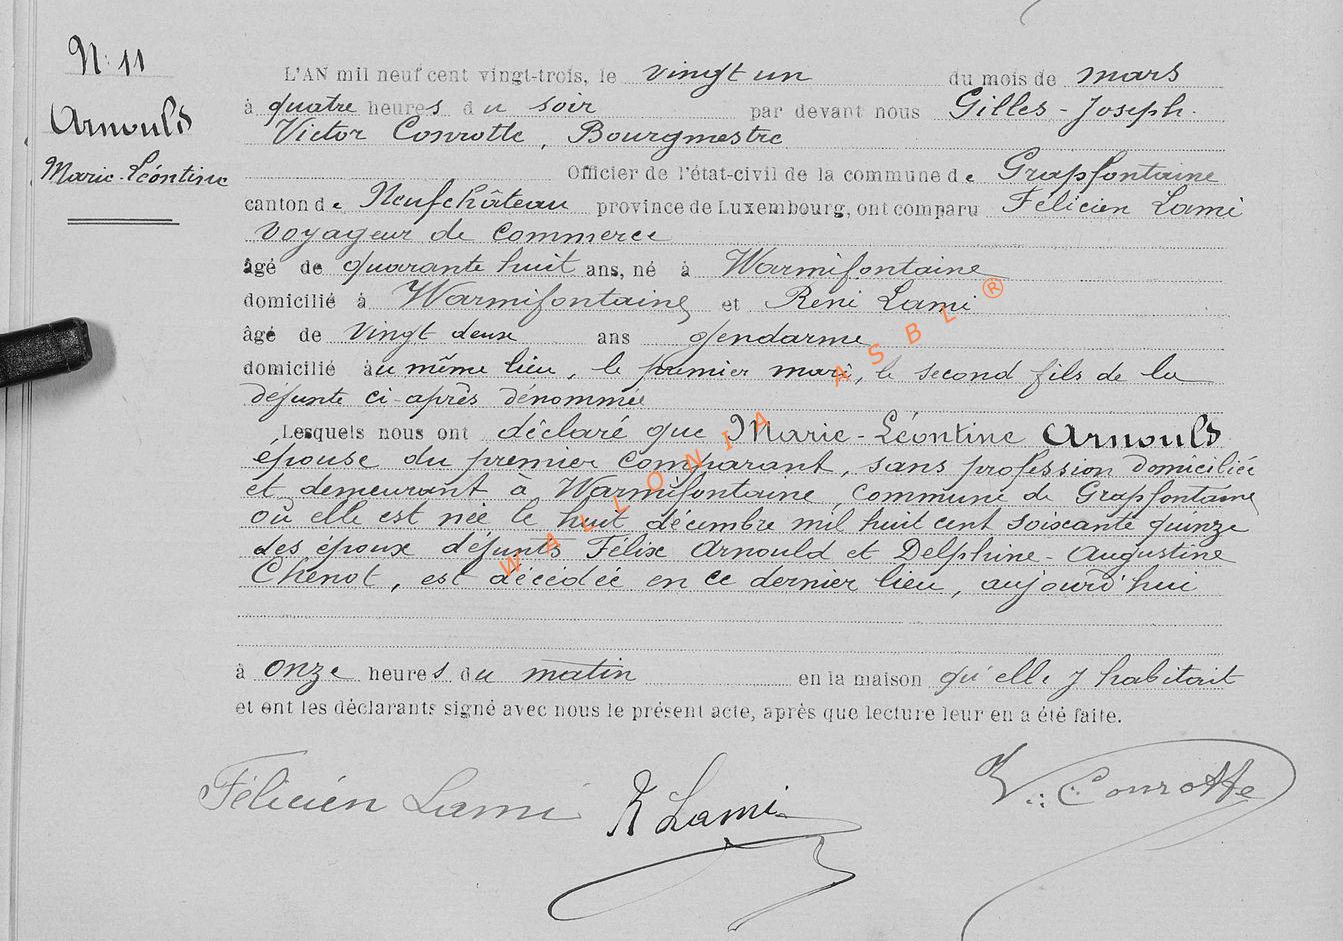 N: 11
Arnould
Marie-Léontine
L'AN mil neuf cent vingt-trois, le vingt un du mois de mars
à quatre heures du soir par devant nous Gilles-Joseph.
Victor Conrotte, Bourgmestre
Officier de l'état-civil de la commune de Grapfontaine
canton de Neufchâteau province de Luxembourg, ont comparu Félicien Lami
voyageur de commerce
âgé de quarante huit ans, né à Warmifontaine
domicilié à Warmifontaine et René Lami
âgé de vingt deux ans gendarme
domicilié au même lieu, le premier mari, le second fils de la
défunte ci-après dénommée
Lesquels nous ont déclaré que Marie-Léontine Arnould
épouse du premier comparant, sans profession domiciliée
et demeurant à Warmifontaine, commune de Grapfontaine
où elle est née le huit décembre mil huit cent soixante quinze
des époux défunts Félix Arnould et Delphine-Augustine
Chenot, est décédée en ce dernier lieu, aujourd'hui
à onze heures du matin en la maison qu'elle y habitait
et ont les déclarants signé avec nous le présent acte, après que lecture leur en a été faite.
Félicien Lami R Lami V. Conrotte
WALLONIA ASBL ®